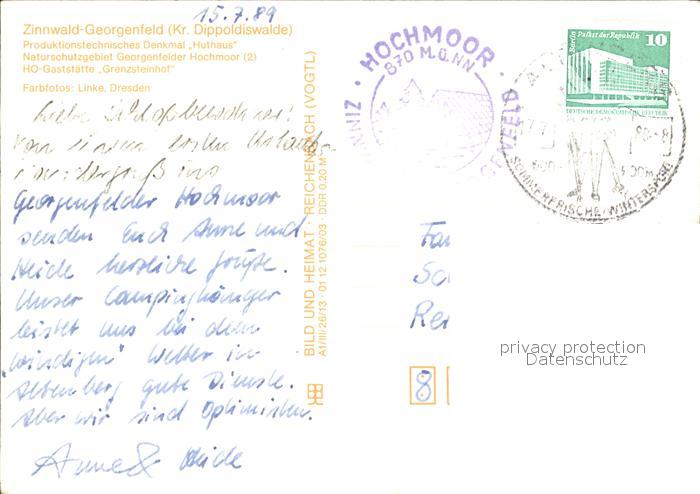 15.7.89
Zinnwald-Georgenfeld (Kr. Dippoldiswalde)
Produktionstechnisches Denkmal „Huthaus"
Naturschutzgebiet Georgenfelder Hochmoor (2)
HO-Gaststätte „Grenzsteinhof"
Farbfotos: Linke, Dresden
Liebe
Von einem ersten Urlaub-
ins
Georgenfelder Hochmoor
senden Euch Anne und
Heide herzliche Grüße.
Unser Campinghänger
leistet uns bei dem
„windigen" Wetter in
Altenberg gute Dienste.
Aber wir sind Optimisten.
Anne & Heide
BILD UND HEIMAT · REICHENBACH (VOGTL)
A1/III/26/13 · 01 12 1076/03 · DDR 0,20 M
· HOCHMOOR ·
870 M.Ü.NN
Berlin Palast der Republik
10
DEUTSCHE DEMOKRATISCHE REPUBLIK
SOMMERFRISCHE · WINTERSPORT
8
privacy protection
Datenschutz